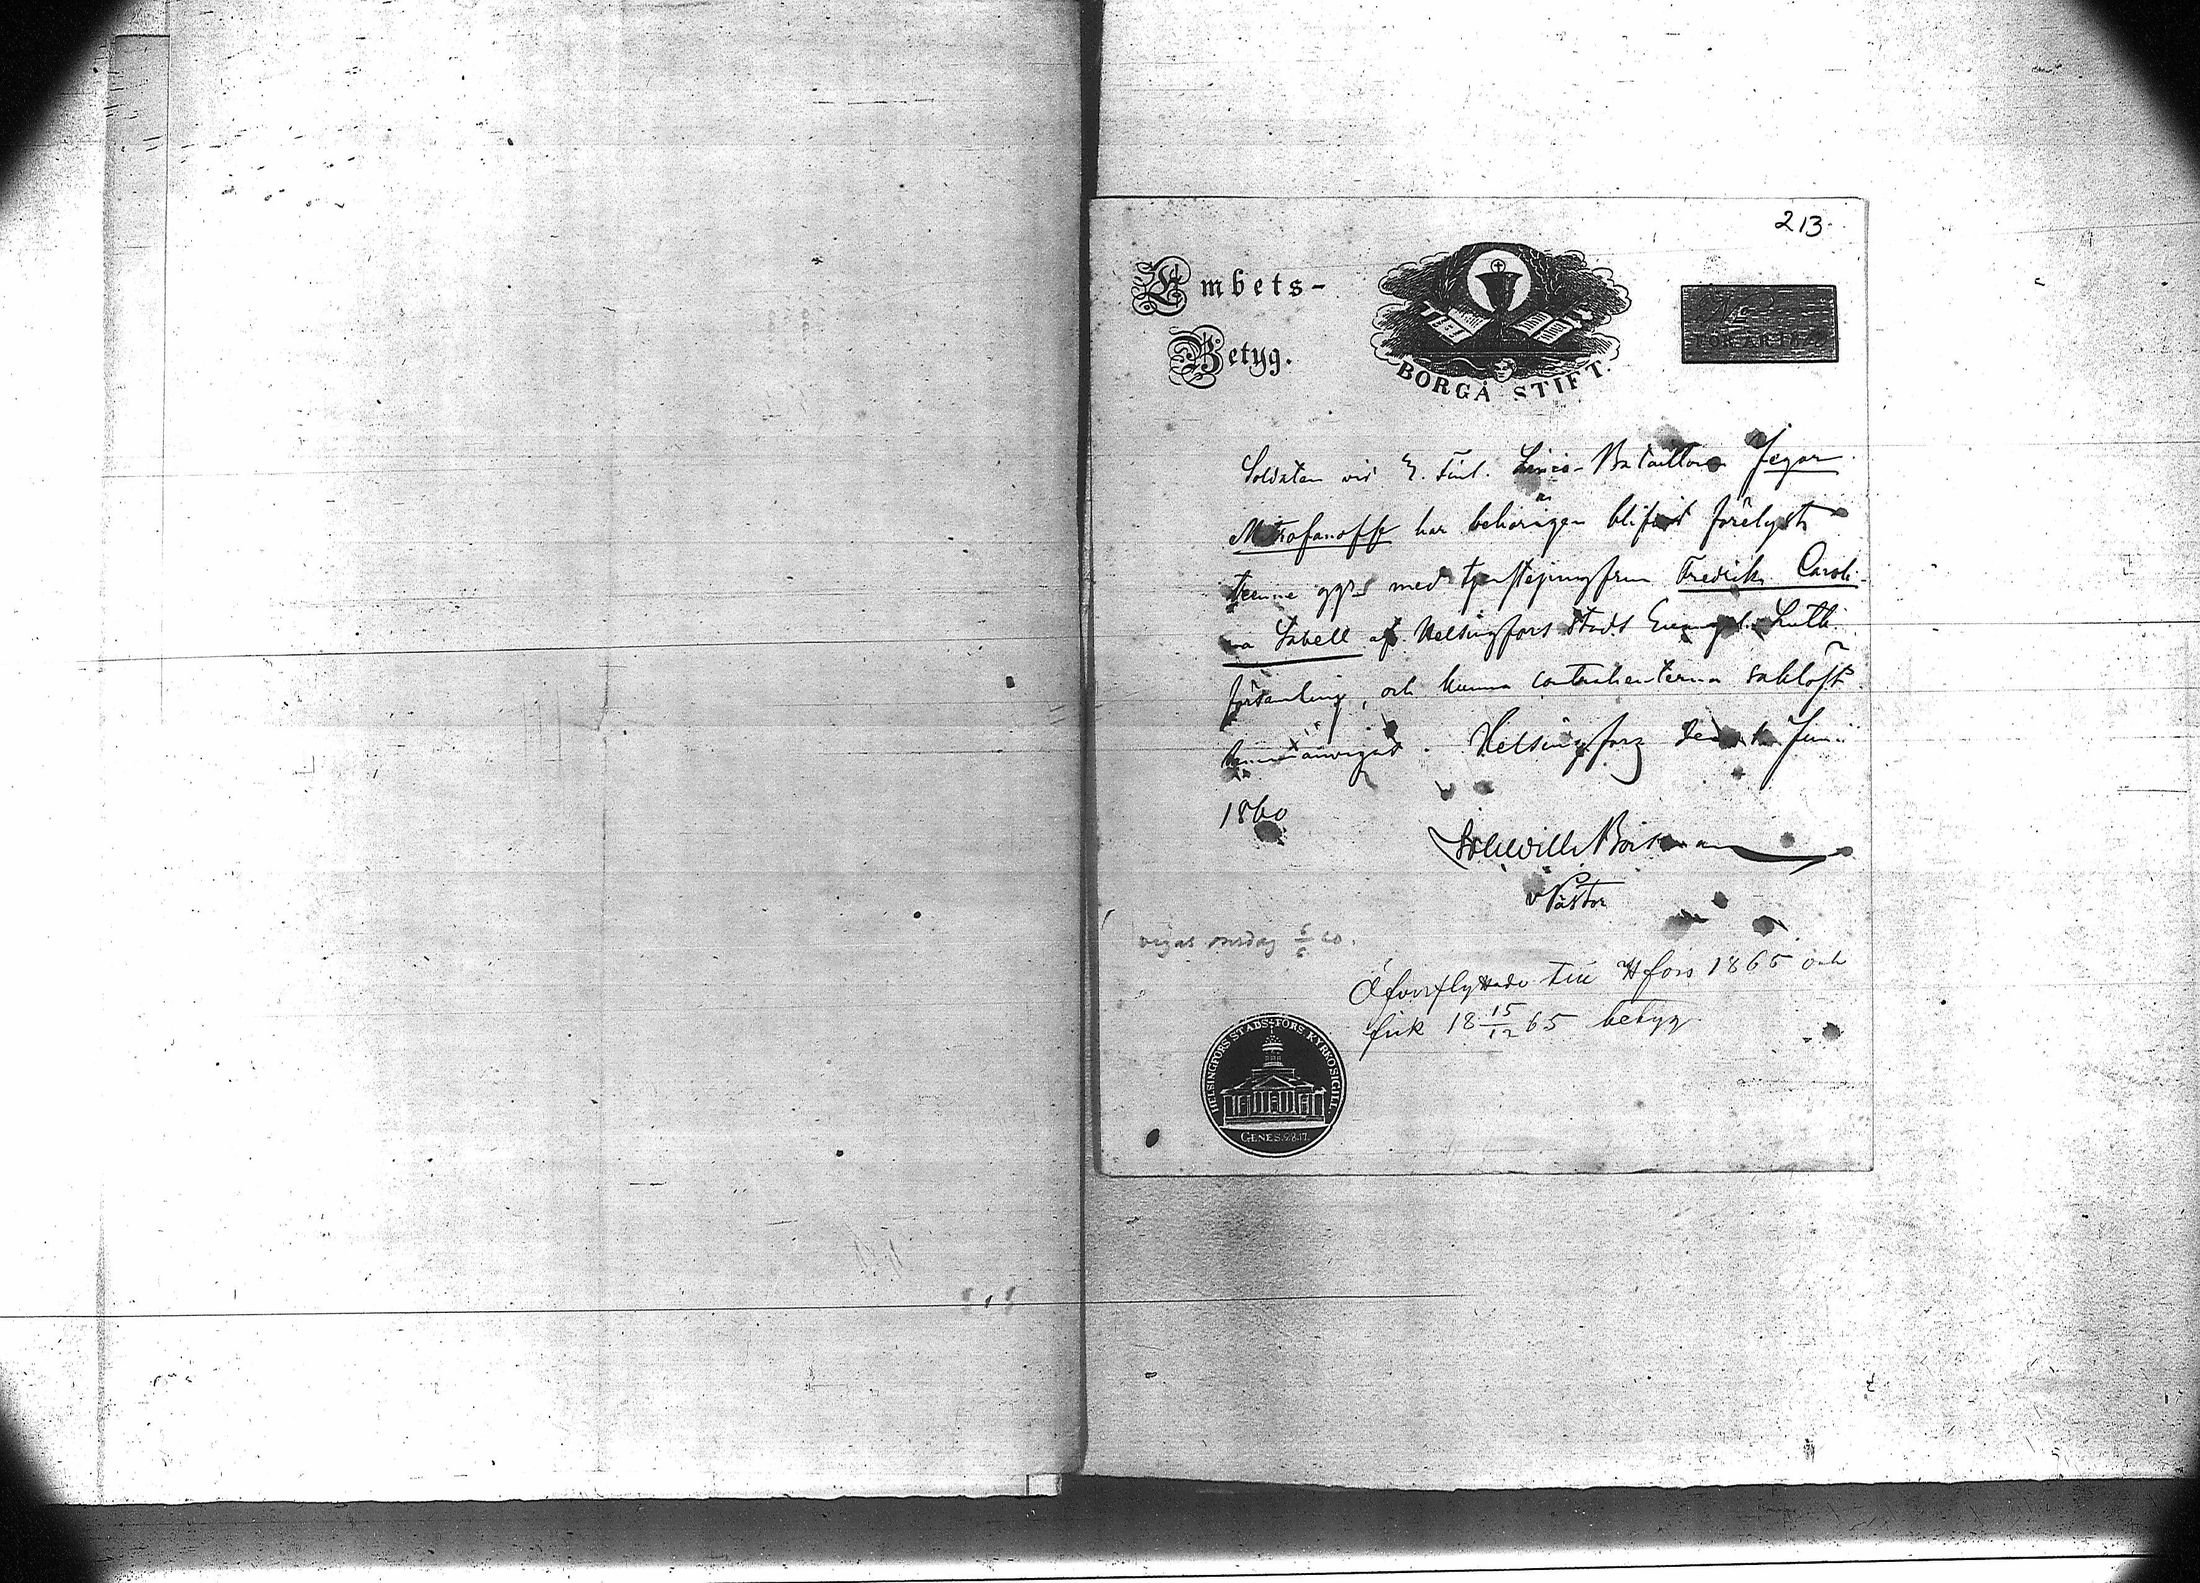 213.
Embets-
Betyg.
BORGÅ STIFT.
No
FÖR ÅR 18
Soldaten vid 2. Finl. Linie-Bataillon Jegor
Mitrofanoff har behörigen blifvit förelyst
trenne ggr med tjenstejungfrun Fredrika Caroli-
na Sabell af Helsingfors stads Evangel. Luth.
församling, och kunna contrahenterna saklöst
sammanvigas. Helsingfors den Juni
1860
Boisman
v Pastor
vigas onsdag 60.
Öfverflyttade till Hfors 1865 och
fick 18 15/12 65 betyg.
HELSINGFORS STADS-FÖRS KYRKOSIGILL.
GENES. 28.17.